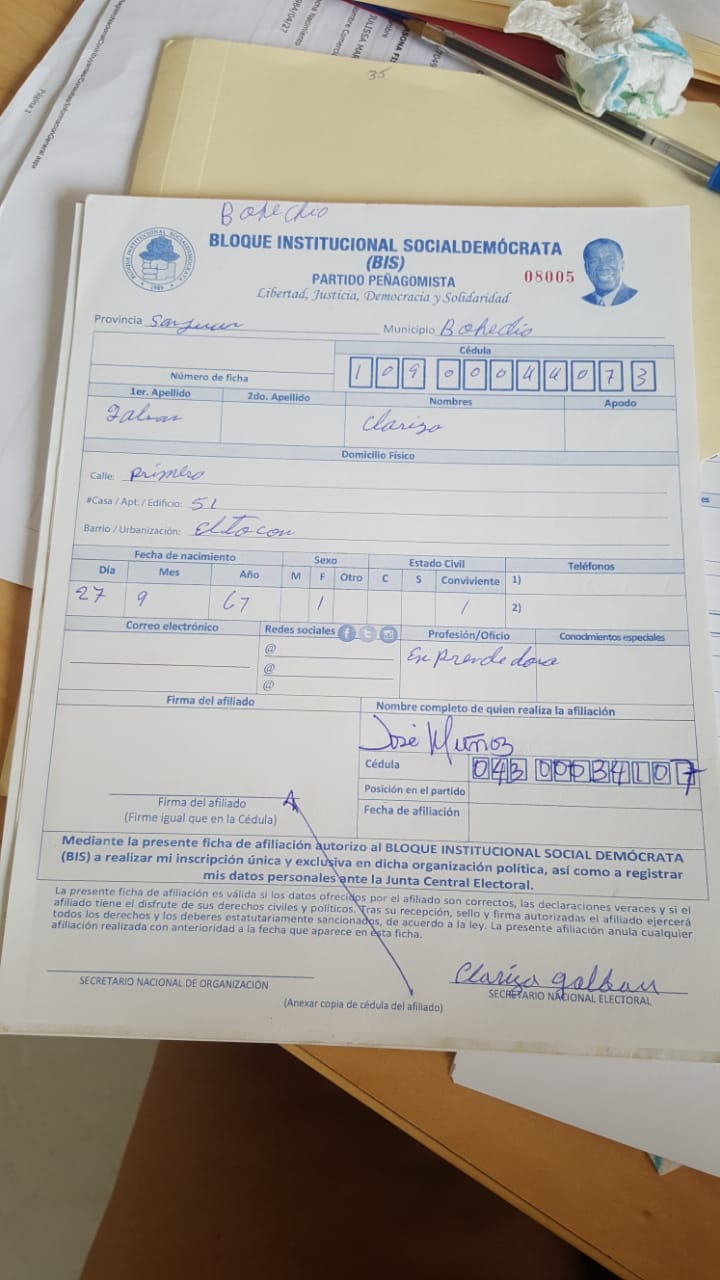 35
Página 1
Bohechio
BLOQUE INSTITUCIONAL SOCIALDEMÓCRATA
(BIS)
PARTIDO PEÑAGOMISTA
08005
Libertad, Justicia, Democracia y Solidaridad
BLOQUE INSTITUCIONAL SOCIALDEMÓCRATA
Provincia San Juan Municipio Bohechio
Cédula
Número de ficha 109 0004407 3
1er. Apellido 2do. Apellido Nombres Apodo
Galvan Clariza
Domicilio Físico
Calle: primera
#Casa / Apt. / Edificio: 51
Barrio / Urbanización: El tocon
Fecha de nacimiento Sexo Estado Civil Teléfonos
Día Mes Año M F Otro C S Conviviente 1)
27 9 67 / / 2)
Correo electrónico Redes sociales Profesión/Oficio Conocimientos especiales
@ Enprendedora
@
@
Firma del afiliado Nombre completo de quien realiza la afiliación
José Muñoz
Cédula 043 0003410 7
Posición en el partido
Firma del afiliado
(Firme igual que en la Cédula)
Fecha de afiliación
Mediante la presente ficha de afiliación autorizo al BLOQUE INSTITUCIONAL SOCIAL DEMÓCRATA
(BIS) a realizar mi inscripción única y exclusiva en dicha organización política, así como a registrar
mis datos personales ante la Junta Central Electoral.
La presente ficha de afiliación es válida si los datos ofrecidos por el afiliado son correctos, las declaraciones veraces y si el
afiliado tiene el disfrute de sus derechos civiles y políticos. Tras su recepción, sello y firma autorizadas el afiliado ejercerá
todos los derechos y los deberes estatutariamente sancionados, de acuerdo a la ley. La presente afiliación anula cualquier
afiliación realizada con anterioridad a la fecha que aparece en esta ficha.
Clariza Galban
SECRETARIO NACIONAL DE ORGANIZACIÓN SECRETARIO NACIONAL ELECTORAL
(Anexar copia de cédula del afiliado)